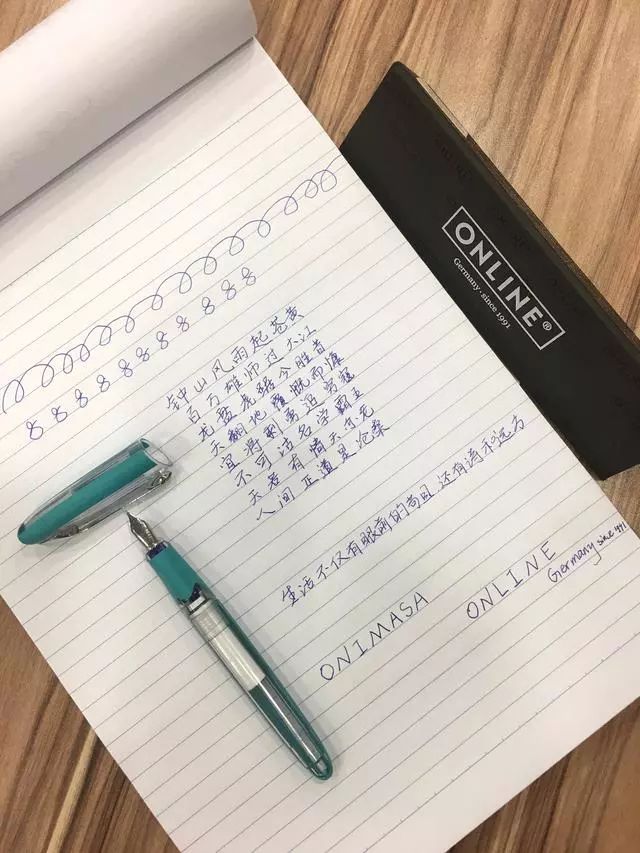 8 8 8 8 8 8 8 8 8 8 8
钟山风雨起苍黄
百万雄师过大江
龙盘虎踞今胜昔
天翻地覆慨而慷
宜将剩勇追穷寇
不可沽名学霸王
天若有情天亦老
人间正道是沧桑
生活不仅有眼前的苟且,还有诗和远方
ONIMASA
ONLINE
Germany since 1991
ONLINE®
Germany . since 1991